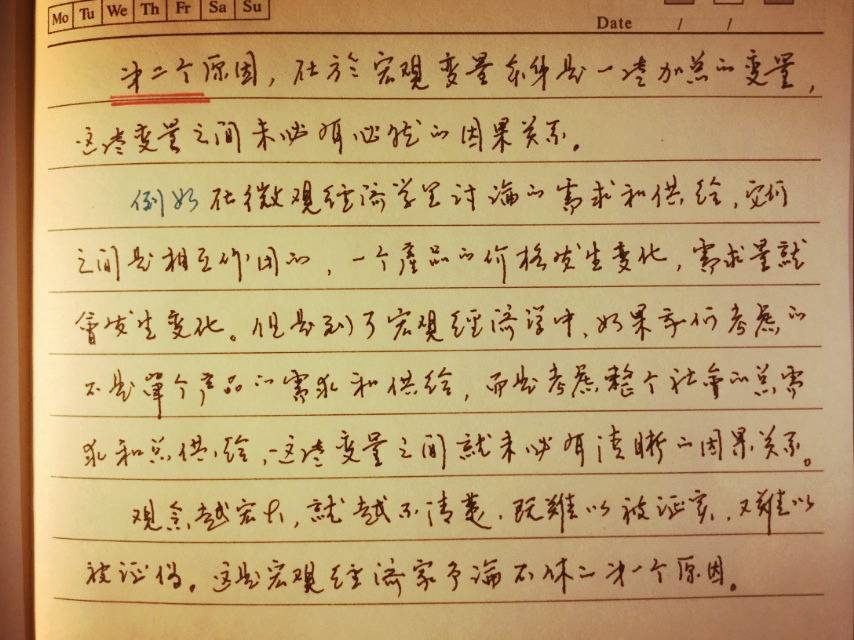 Mo Tu We Th Fr Sa Su
Date / /
第二个原因，在於宏观变量本身是一堆加总的变量，
这些变量之间未必有必然的因果关系。
例如在微观经济学里讨论的需求和供给，它们
之间是相互作用的，一个產品的价格发生变化，需求量就
會发生变化。但是到了宏观经济学中，如果我们考虑的
不是單个产品的需求和供给，而是考虑整个社會的总需
求和总供给，这些变量之间就未必有清晰的因果关系。
观念越宏大，就越不清楚，既难以被证实，又难以
被证伪。这是宏观经济家争论不休的第一个原因。